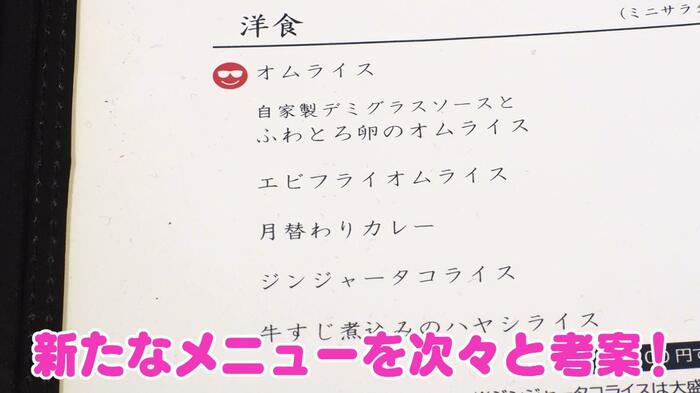 洋食
(ミニサラダ
オムライス
自家製デミグラスソースと
ふわとろ卵のオムライス
エビフライオムライス
月替わりカレー
ジンジャータコライス
牛すじ煮込みのハヤシライス
新たなメニューを次々と考案!
00円
ジンジャータコライスは大盛